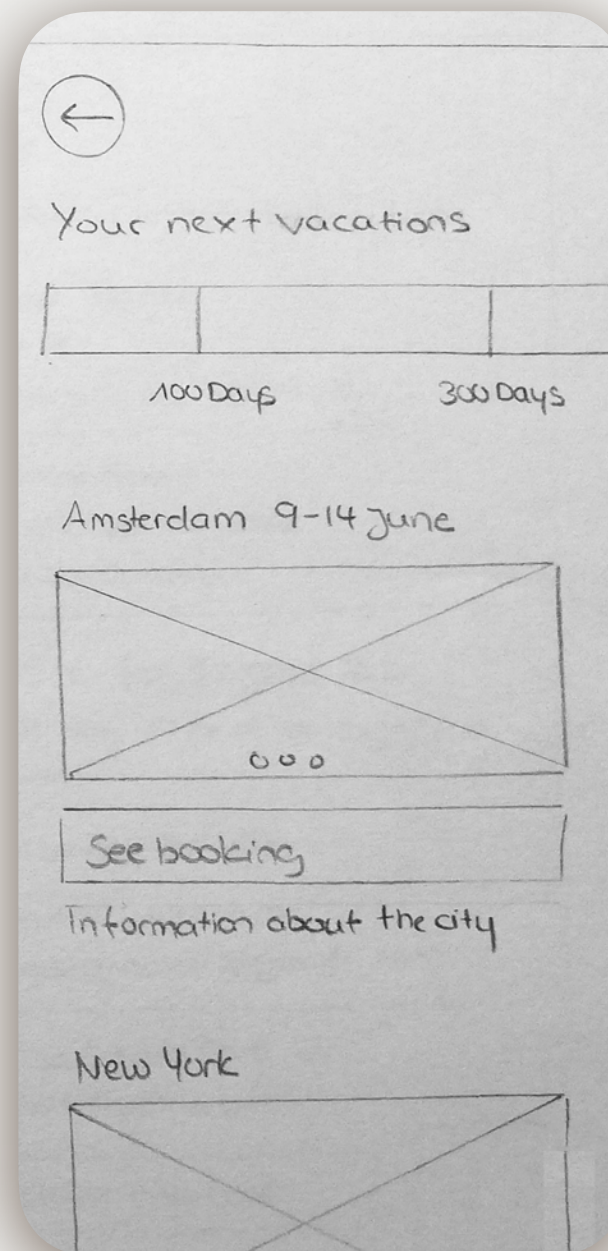 Your next vacations
100 Days 300 Days
Amsterdam 9-14 June
See booking
Information about the city
New York